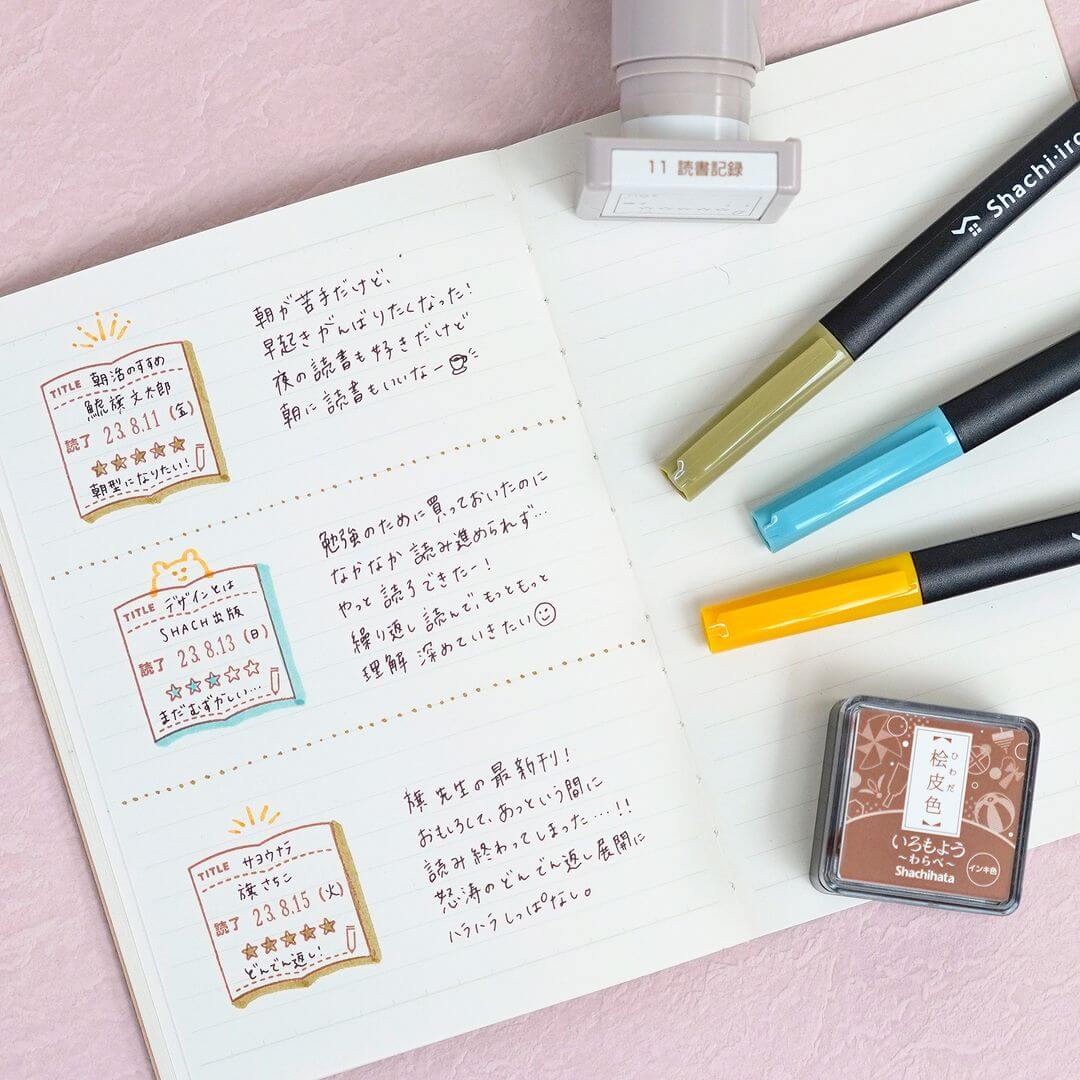 11 読書記録
Shachi·iro
TITLE 朝活のすすめ
鯱旗文太郎
読了 23.8.11 (金)
朝型になりたい!
朝が苦手だけど、
早起きがんばりたくなった!
夜の読書も好きだけど
朝に読書もいいなー
TITLE デザインとは
SHACHI出版
読了 23.8.13 (日)
まだむずかしい…
勉強のために買っておいたのに
なかなか読み進められず…
やっと読了できたー!
繰り返し読んで、もっともっと
理解深めていきたい
TITLE サヨウナラ
旗さちこ
読了 23.8.15 (火)
どんでん返し!
旗先生の最新刊!
おもしろして、あっという間に
読み終わってしまった…!!
怒涛のどんでん返し展開に
ハラハラしっぱなし。
【桧皮色】
ひわだ
いろもよう
~わらべ~
Shachihata
インキ色